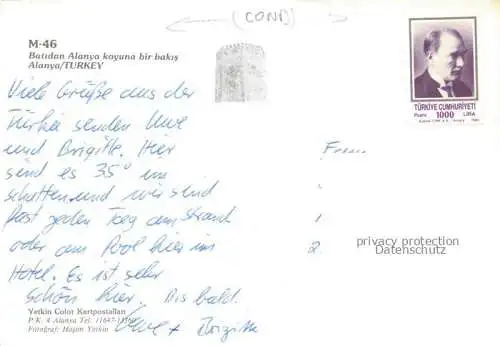 (COND)
M-46
Batıdan Alanya koyuna bir bakış
Alanya/TURKEY
TÜRKİYE CUMHURİYETİ
Posta 1000 LİRA
Viele Grüße aus der
Türkei senden Uwe
und Brigitte. Hier
sind es 35° im
schatten und wir sind
fast jeden Tag am Strand
oder am Pool hier im
Hotel. Es ist sehr
schön hier. Bis bald.
Uwe + Brigitte
Frau
1
2
privacy protection
Datenschutz
Yetkin Color Kartpostalları
P.K. 4 Alanya Tel: 11647-13360
Fotoğraf: Haşim Yetkin